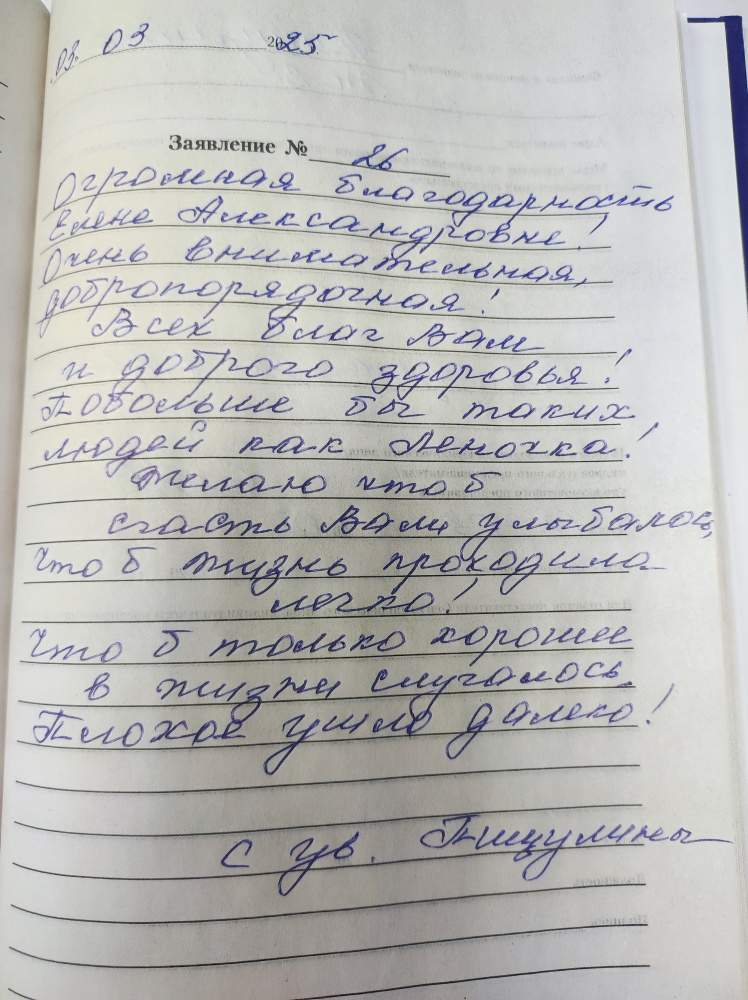 03. 03 2025
Заявление № 26
Огромная благодарность
Елене Александровне!
Очень внимательная,
добропорядочная!
Всех благ Вам
и доброго здоровья!
Побольше бы таких
людей как Леночка!
Желаю что б
счасть Вам улыбалось,
Что б жизнь проходила
легко!
Что б только хорошее
в жизни случалось.
Плохое ушло далеко!
С ув. Пищулины